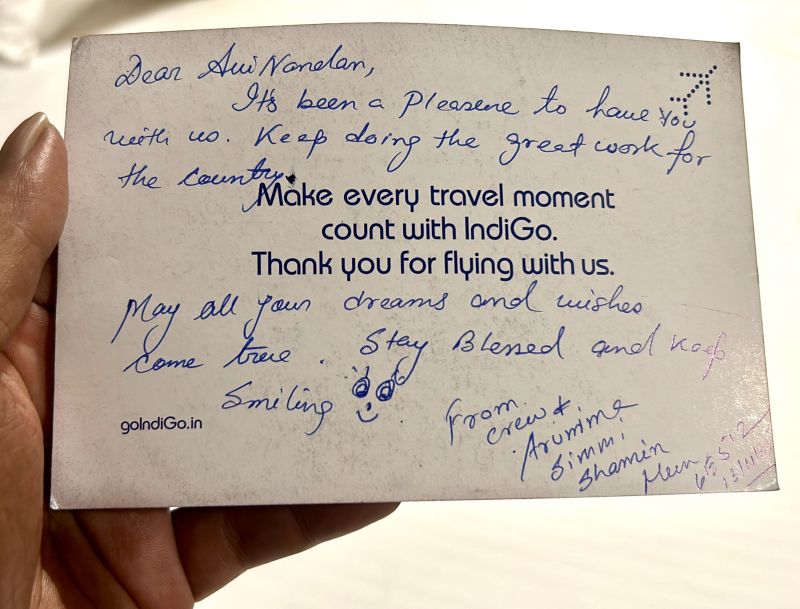 Dear AviNandan,
It's been a Pleasene to have You
with us. Keep doing the great work for
the country.
Make every travel moment
count with IndiGo.
Thank you for flying with us.
May all your dreams and wishes
come true. Stay Blessed and keep
Smiling
goIndiGo.in
From
Crew &
Arunima
Simmi
Shamin
6E 512